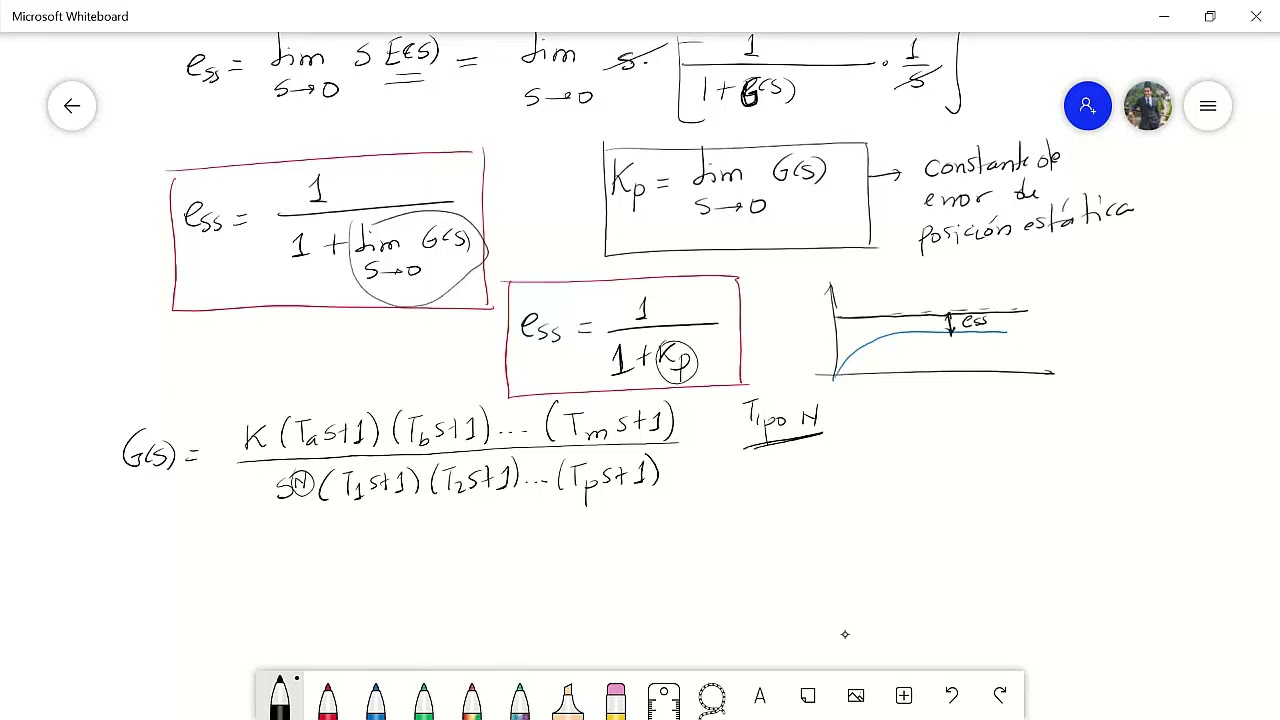 Microsoft Whiteboard
e_ss = lim s→0 s E(s) = lim s→0 s · [ 1 / (1 + G(s)) · 1/s ]
e_ss = 1 / (1 + lim s→0 G(s))
Kp = lim s→0 G(s) → constante de
error de
posición estática
e_ss = 1 / (1 + Kp)
ess
G(s) = K (Ta s+1) (Tb s+1) ... (Tm s+1) / s^N (T1 s+1) (T2 s+1) ... (Tp s+1)
Tipo N
A